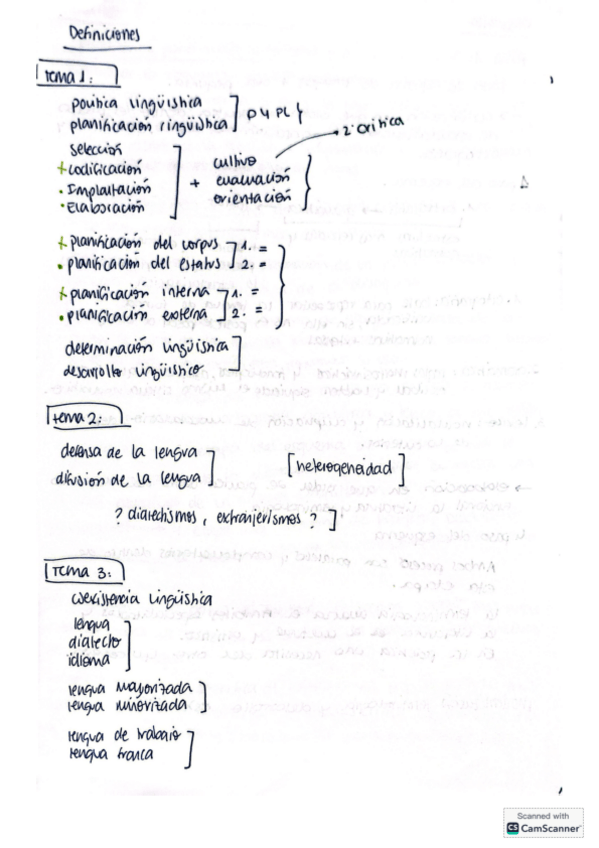 Definiciones
tema 1:
política lingüística
planificación lingüística ] P y PL }
selección
+ codificación
· Implantación
· Elaboración
+ cultivo
evaluación
orientación
→ 2ª crítica
+ planificación del corpus ] 1. =
· planificación del estatus ] 2. =
+ planificación interna ] 1. =
· planificación externa ] 2. =
determinación lingüística
desarrollo lingüístico
tema 2:
defensa de la lengua
difusión de la lengua
[heterogeneidad]
? dialectismos, extranjerismos ?
Tema 3:
coexistencia lingüística
lengua
dialecto
idioma
lengua mayorizada
lengua minorizada
lengua de trabajo
lengua franca
Scanned with
CS CamScanner